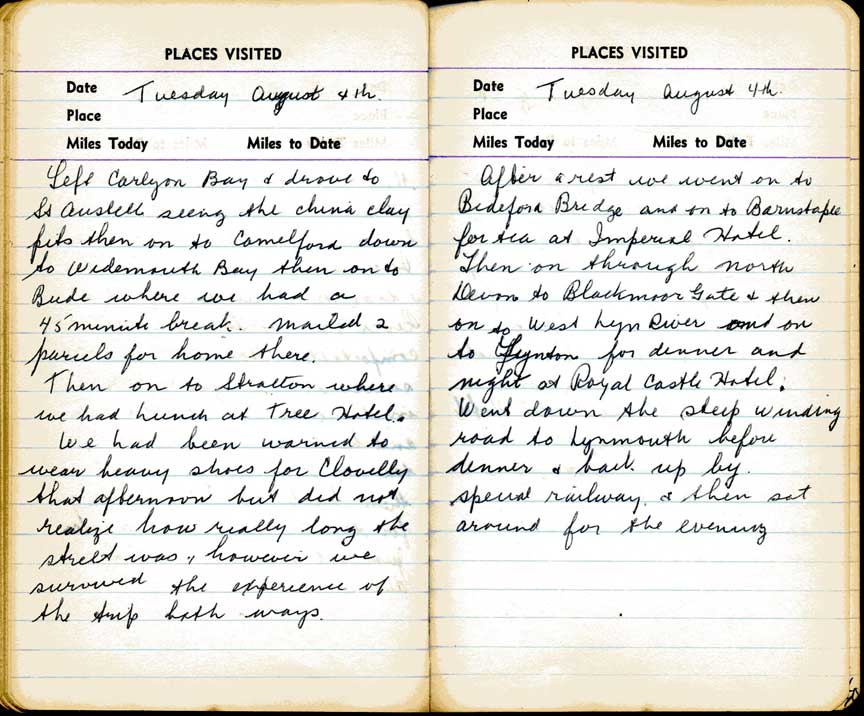 PLACES VISITED
Date Tuesday August 4th.
Place
Miles Today Miles to Date
Left Carlyon Bay & drove to
St Austell seeing the china clay
pits then on to Camelford down
to Widemouth Bay then on to
Bude where we had a
45 minute break. Mailed 2
parcels for home there.
Then on to Stratton where
we had lunch at Tree Hotel.
We had been warned to
wear heavy shoes for Clovelly
that afternoon but did not
realize how really long the
street was, however we
survived the experience of
the trip both ways.
PLACES VISITED
Date Tuesday August 4th.
Place
Miles Today Miles to Date
After a rest we went on to
Bideford Bridge and on to Barnstaple
for tea at Imperial Hotel.
Then on through north
Devon to Blackmoor Gate & then
on to West Lyn River and on
to Lynton for dinner and
night at Royal Castle Hotel.
Went down the steep winding
road to Lynmouth before
dinner & back up by
special railway & then sat
around for the evening